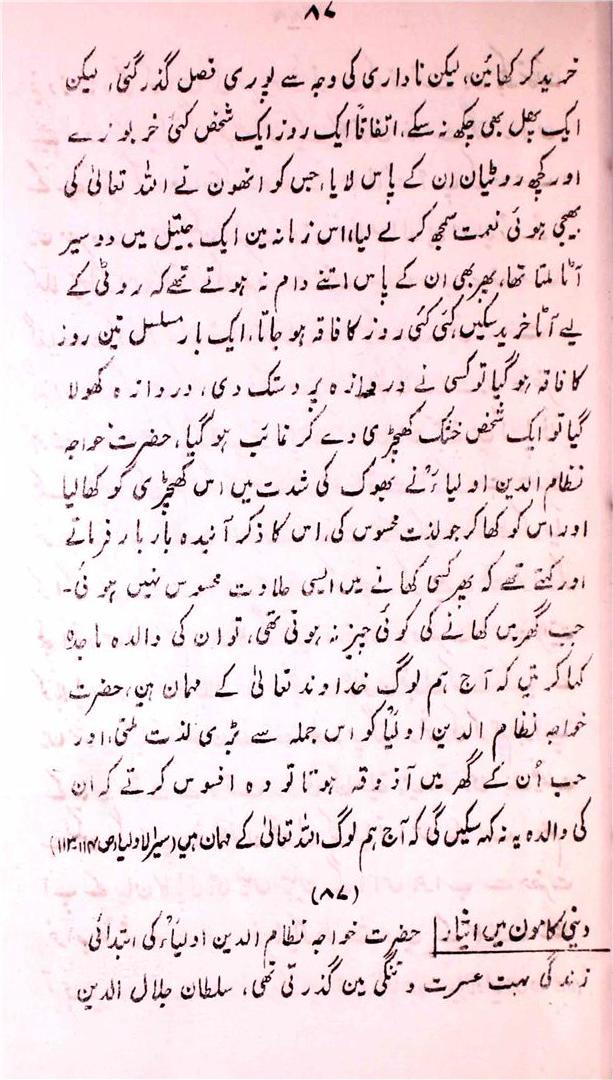 ۸۷
خرید کر کھائین، لیکن ناداری کی وجہ سے پوری فصل گذر گئی، لیکن
ایک پھل بھی چکھ نہ سکے، اتفاقاً ایک روز ایک شخص کئی خربوزے
اور کچھ روٹیان ان کے پاس لایا، جس کو انھون نے اللہ تعالیٰ کی
بھیجی ہوئی نعمت سمجھ کر لے لیا، اس زمانہ مین ایک جیتل میں دو سیر
آٹا ملتا تھا، پھر بھی ان کے پاس اتنے دام نہ ہوتے تھے کہ روٹی کے
لیے آٹا خرید سکیں، کئی کئی روز کا فاقہ ہو جاتا، ایک بار مسلسل تین روز
کا فاقہ ہو گیا تو کسی نے دروازہ پر دستک دی، دروازہ کھولا
گیا تو ایک شخص خشک کھچڑی دے کر غائب ہو گیا، حضرت خواجہ
نظام الدین اولیاءؒ نے بھوک کی شدت میں اس کھچڑی کو کھا لیا
اور اس کو کھا کر جو لذت محسوس کی، اس کا ذکر آئندہ بار بار فرماتے
اور کہتے تھے کہ پھر کسی کھانے میں ایسی حلاوت محسوس نہیں ہوئی۔
جب گھر میں کھانے کی کوئی چیز نہ ہوتی تھی، تو ان کی والدہ ماجدہ
کہا کرتیں کہ آج ہم لوگ خداوند تعالیٰ کے مہمان ہین، حضرت
خواجہ نظام الدین اولیاؒ کو اس جملہ سے بڑی لذت ملتی، اور
جب اُن کے گھر میں آذوقہ ہوتا تو وہ افسوس کرتے کہ ان
کی والدہ یہ نہ کہہ سکیں گی کہ آج ہم لوگ اللہ تعالیٰ کے مہمان ہین (سیر الاولیاء ص ۱۱۴-۱۱۳)
(۸۷)
دینی کامون میں ایثار حضرت خواجہ نظام الدین اولیاءؒ کی ابتدائی
زندگی بہت عسرت و تنگی مین گذرتی تھی، سلطان جلال الدین